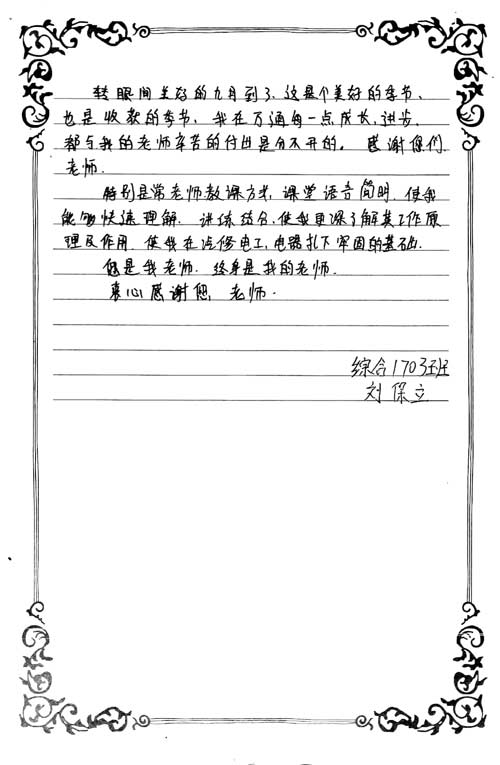 转眼间美好的九月到了、这是个美好的季节、
也是收获的季节，我在万通每一点成长、进步、
都与我的老师辛苦的付出是分不开的。感谢您们
老师.
特别是常老师教课方式，课堂语言简明.使我
能够快速理解.讲练结合，使我更深了解其工作原
理及作用.使我在汽修电工，电器扎下牢固的基础.
您是我老师.终身是我的老师.
衷心感谢您，老师.
综合1703班
刘保立